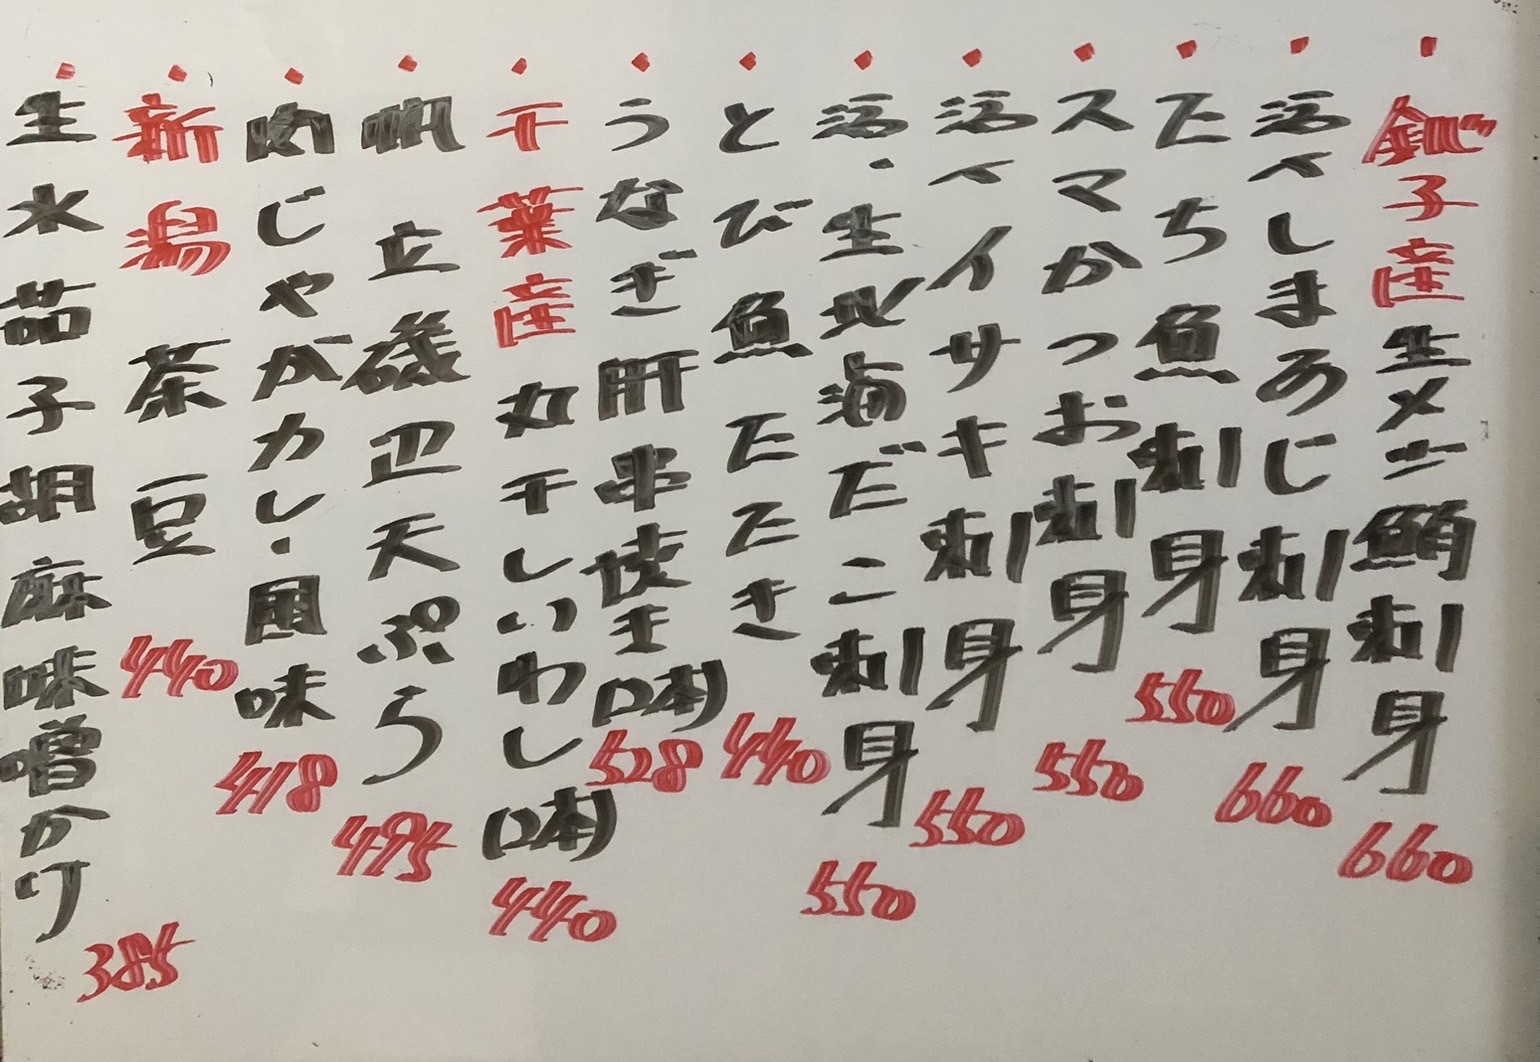 ・銚子産生メジ鮪刺身 660
・活〆しまあじ刺身 660
・たち魚刺身 550
・スマかつお刺身 550
・活〆イサキ刺身 550
・活・生地海だこ刺身 550
・とび魚たたき 440
・うなぎ肝串焼き(1本) 528
・千葉産丸干しいわし(1本) 440
・帆立磯辺天ぷら 495
・肉じゃがカレー風味 418
・新潟茶豆 440
・生水茄子胡麻味噌かけ 385